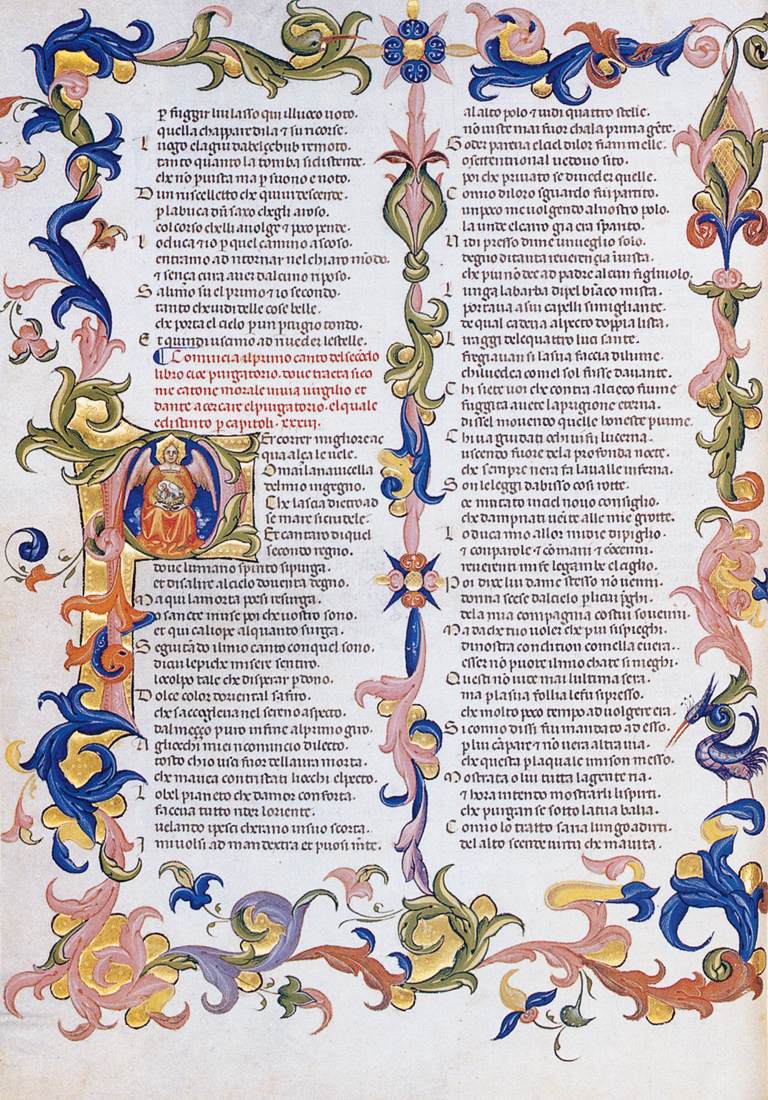 p fuggir lui lasso qui illuoco voto.
quella chappare di la & su ricorse.
Luogo e la giu da belzebub remoto.
tanto quanto la tomba si distente.
che nō p uista ma p suono e noto.
Dun ruscelletto che quiui descente.
p la buca dū saxo chegli a roso.
col corso chelli auolge & poco pente.
Lo duca & io p quel camino ascoso.
entramo ad ritornar nel chiaro mōdo.
& senza cura auer dalcuno riposo.
Salimo su el primo & io secondo.
tanto chi uidi delle cose belle.
che porta el cielo p un ptugio tondo.
Et quindi uscimo ad riueder le stelle.
Comincia al primo canto del secōdo
libro cioe purgatorio. doue tracta sico
me catone morale
uirgilio et
dante a cercare el purgatorio. el quale
e distinto p capitoli. xxxiii.
Per correr miglior e ac
qua alça le uele.
Omai la nauicella
del mio ingegno.
Che lascia dietro ad
se mare si crudele.
Et cantaro di quel
secondo regno.
doue lumano spirito si purga.
et di salire al cielo douenta degno.
Ma qui la morta poesi resurga.
o sancte muse poi che uostro sono.
et qui caliope alquanto surga.
Seguitādo il mio canto con quel sono.
di cui le piche misere sentiro.
lo colpo tale che disperar pdono.
Dolce color doriental saffiro.
che saccogliena nel sereno aspecto.
dal meçço puro infine al primo giro.
Agliocchi miei ricomincio dilecto.
tosto chio usci fuor dell aura morta.
che mauea contristati liocchi el pecto.
Lo bel pianeto che damor conforta.
facea tutto rider loriente.
uelando i pesci cherano in sua scorta.
I mi uolsi ad man dextra et puosi mēte.
al alto polo & uidi quattro stelle.
nō uiste mai fuor cha la prima gēte.
Goder parena el ciel di lor fiammelle.
o septentrional uedouo sito.
poi che priuato se di ueder quelle.
Comio di loro sguardo fui partito.
un poco me uolgendo al nostro polo.
la unde el carro gia era sparito.
Vidi presso di me un ueglio solo.
degno di tanta reuerença i uista.
che piu nō dee ad padre alcun figliuolo.
Lunga la barba di pel biāco mista.
portaua a suoi capelli simigliante.
de qual cadeua al pecto doppia lista.
Li raggi de le quatro luci sante.
fregiauan si la sua faccia di lume.
chi uedea comel sol fusse dauante.
Chi siete uoi che contra al cieco fiume
fuggita auete la prigione eterna.
dissel mouendo quelle honeste piume.
Chi ua guidati o chi ui fu lucerna.
uscendo fuore de la profonda nocte.
che sempre nera fa la ualle inferna.
Son le leggi dabisso cosi rotte.
o e mutato in ciel nouo consiglio.
che dampnati uenite alle mie grotte.
Lo duca mio allor mi die di piglio
& con parole & cō mani & cō cenni.
reuerenti mi fe le gambe el ciglio.
Poi dixe lui da me stesso nō uenni.
donna scese dal cielo p li cui pghi.
de la mia compagnia costui souenni.
Ma da che tuo uoler che piu si spieghi.
di nostra condition comella e uera.
esser nō puote il mio cha te si nieghi.
Questi nō uide mai lultima sera.
ma p la sua follia le fu si presso.
che molto poco tempo ad uolger era.
Si comio dissi fui mandato ad esso.
p lui cāpare & nō uera altra uia.
che questa p la quale mi son messo.
Mostrata o lui tutta la gente ria.
& hora intendo mostrar li spiriti.
che purgan se sotto la tua balia.
Comio lo tratto saria lungo a dirti.
del alto scende uirtu che maiuta.